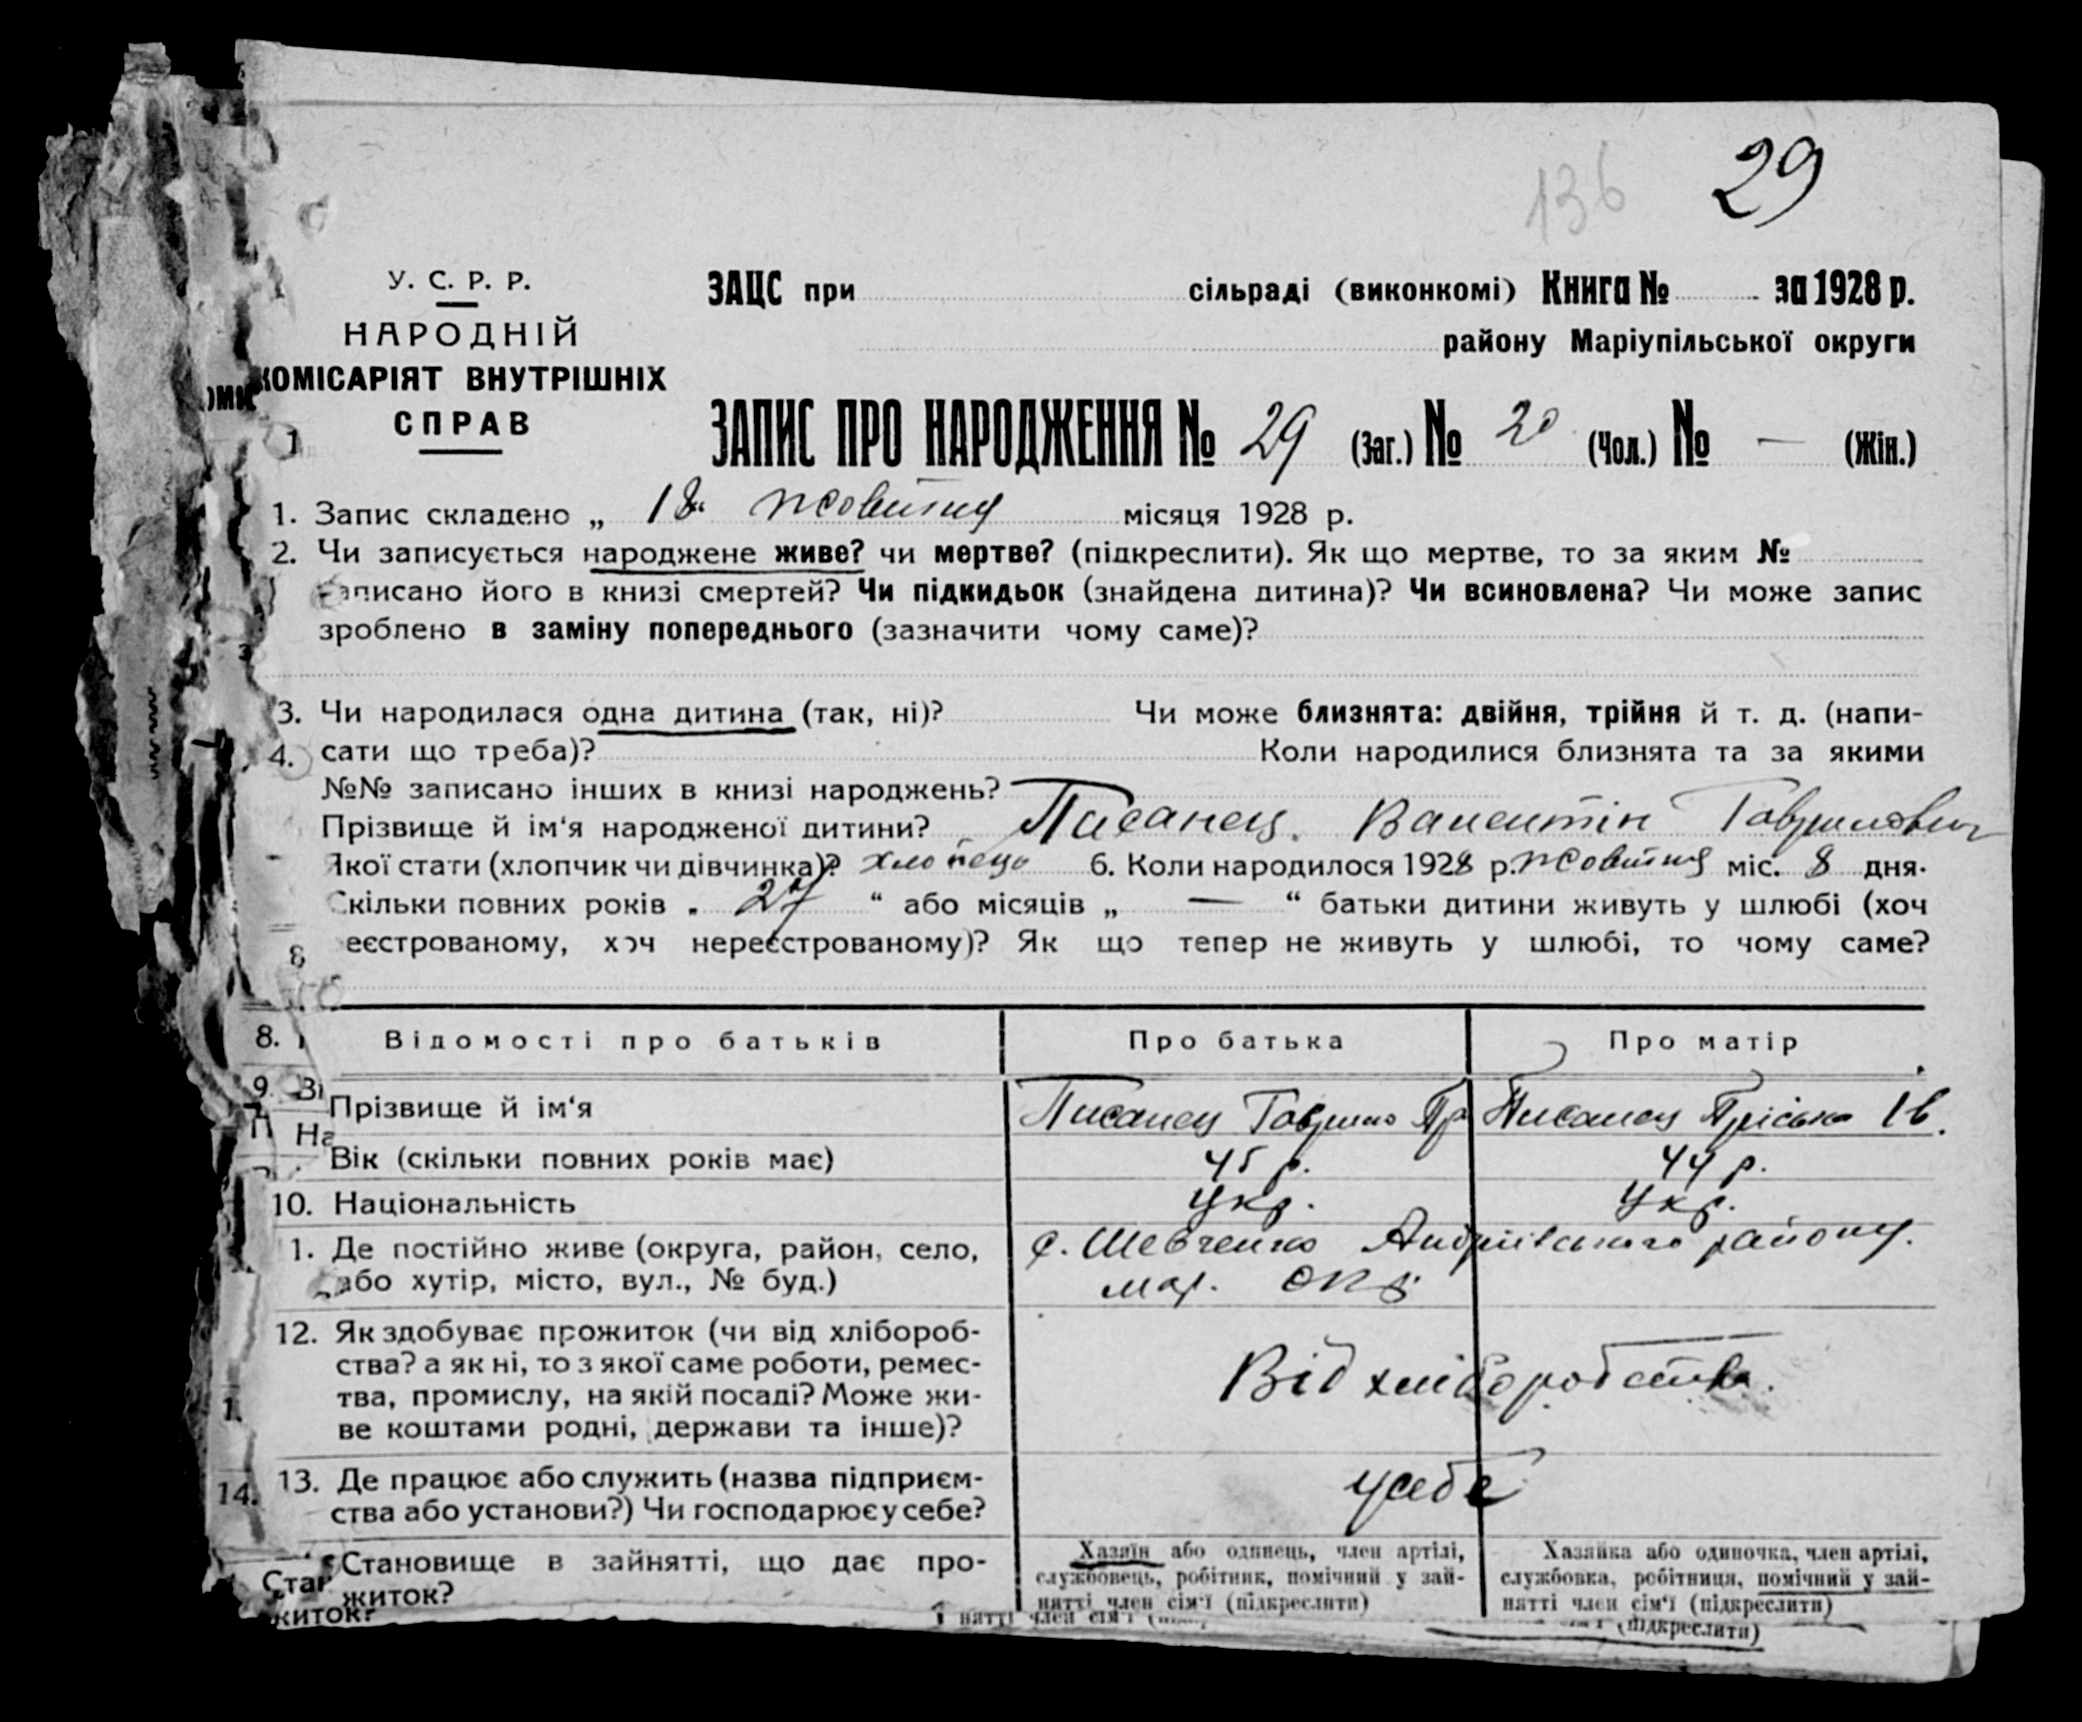 29
136
У. С. Р. Р.
НАРОДНІЙ
КОМІСАРІЯТ ВНУТРІШНІХ
СПРАВ
ЗАЦС при сільраді (виконкомі) Книга № за 1928 р.
району Маріупільської округи
ЗАПИС ПРО НАРОДЖЕННЯ № 29 (Заг.) № 20 (Чол.) № — (Жін.)
1. Запис складено „ 18 " жовтня місяця 1928 р.
2. Чи записується народжене живе? чи мертве? (підкреслити). Як що мертве, то за яким №
записано його в книзі смертей? Чи підкидьок (знайдена дитина)? Чи всиновлена? Чи може запис
зроблено в заміну попереднього (зазначити чому саме)?
3. Чи народилася одна дитина (так, ні)? Чи може близнята: двійня, трійня й т. д. (напи-
4. сати що треба)? Коли народилися близнята та за якими
№№ записано інших в книзі народжень?
Прізвище й ім‘я народженої дитини? Писанец Валентін Гаврилович
Якої стати (хлопчик чи дівчинка)? хлопець 6. Коли народилося 1928 р. жовтня міс. 8 дня.
Скільки повних років „ 27 “ або місяців „ — “ батьки дитини живуть у шлюбі (хоч
еєстрованому, хоч нереєстрованому)? Як що тепер не живуть у шлюбі, то чому саме?
8
8. Відомості про батьків Про батька Про матір
9. Ві
Прізвище й ім‘я Писанец Гаврило Пр Писанец Пріська Ів.
На
Вік (скільки повних років має) 45 р. 44 р.
10. Національність Укр. Укр.
1. Де постійно живе (округа, район, село, с. Шевченко Андріївського району.
або хутір, місто, вул., № буд.) мар. окр.
12. Як здобуває прожиток (чи від хлібороб-
ства? а як ні, то з якої саме роботи, ремес-
тва, промислу, на якій посаді? Може жи-
ве коштами родні, держави та інше)? Від хліборобства.
14. 13. Де працює або служить (назва підприєм-
ства або установи?) Чи господарює у себе? у себе
Становище в зайнятті, що дає про-
житок?
Хазяїн або одинець, член артілі,
службовець, робітник, помічний у зай-
нятті член сім‘ї (підкреслити)
Хазяйка або одиночка, член артілі,
службовка, робітниця, помічний у зай-
нятті член сім‘ї (підкреслити)
Стан
житок?
нятті член сім‘ї
(підкреслити)